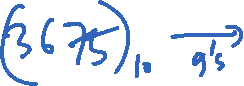 (3675)₁₀ ⟶ 9's